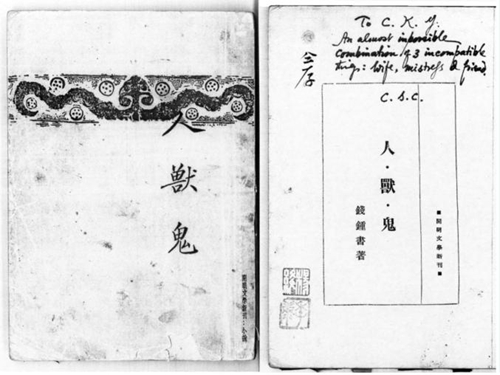 人
獸
鬼
開明文學新刊・小說
To C. K. Y.
An almost impossible
combination of 3 incompatible
things: wife, mistress & friend.
C. S. C.
人・獸・鬼
錢鍾書著
■開明文學新刊■